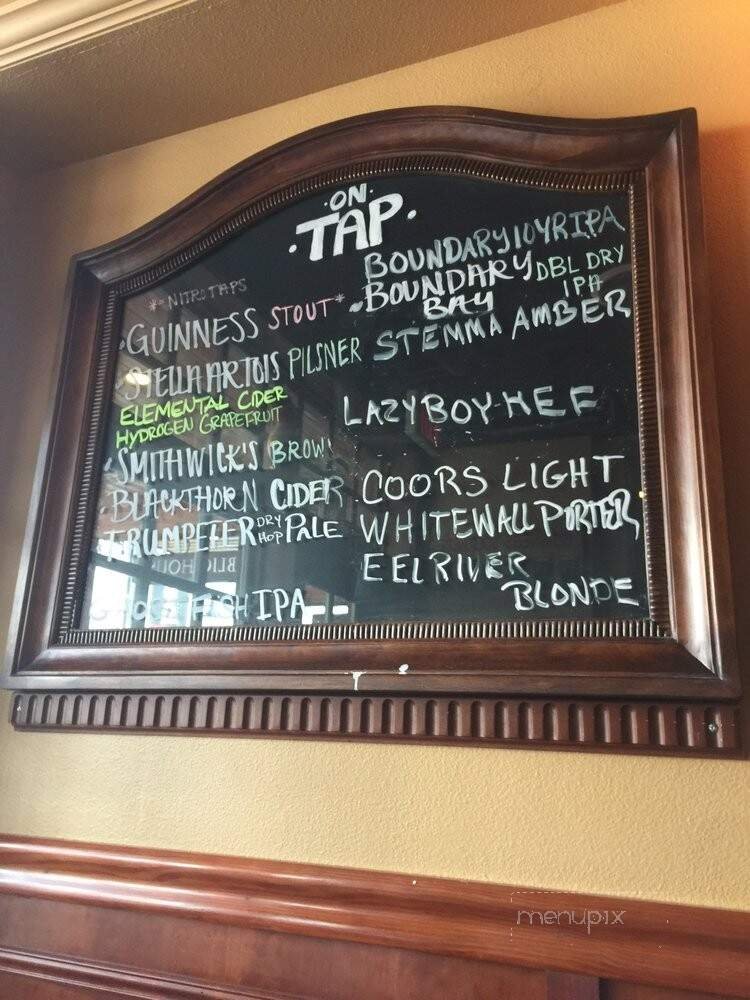 ·ON·
·TAP·
*=NITRO TAPS
·GUINNESS STOUT*
·STELLA ARTOIS PILSNER
ELEMENTAL CIDER
HYDROGEN GRAPEFRUIT
·SMITHWICK'S BROWN
·BLACKTHORN CIDER
DRY HOP PALE
FISH IPA
BOUNDARY 10YR IPA
BOUNDARY BAY DBL DRY IPA
STEMMA AMBER
LAZY BOY HEF
COORS LIGHT
WHITEWALL PORTER
EEL RIVER
BLONDE
menupix